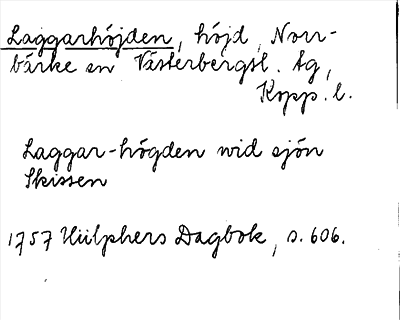 Laggarhöjden, höjd, Norr-
bärke sn Västerbergsl. tg,
Kopp. l.
Laggar-högden wid sjön
Skissen
1757 Hülphers Dagbok, s. 606.